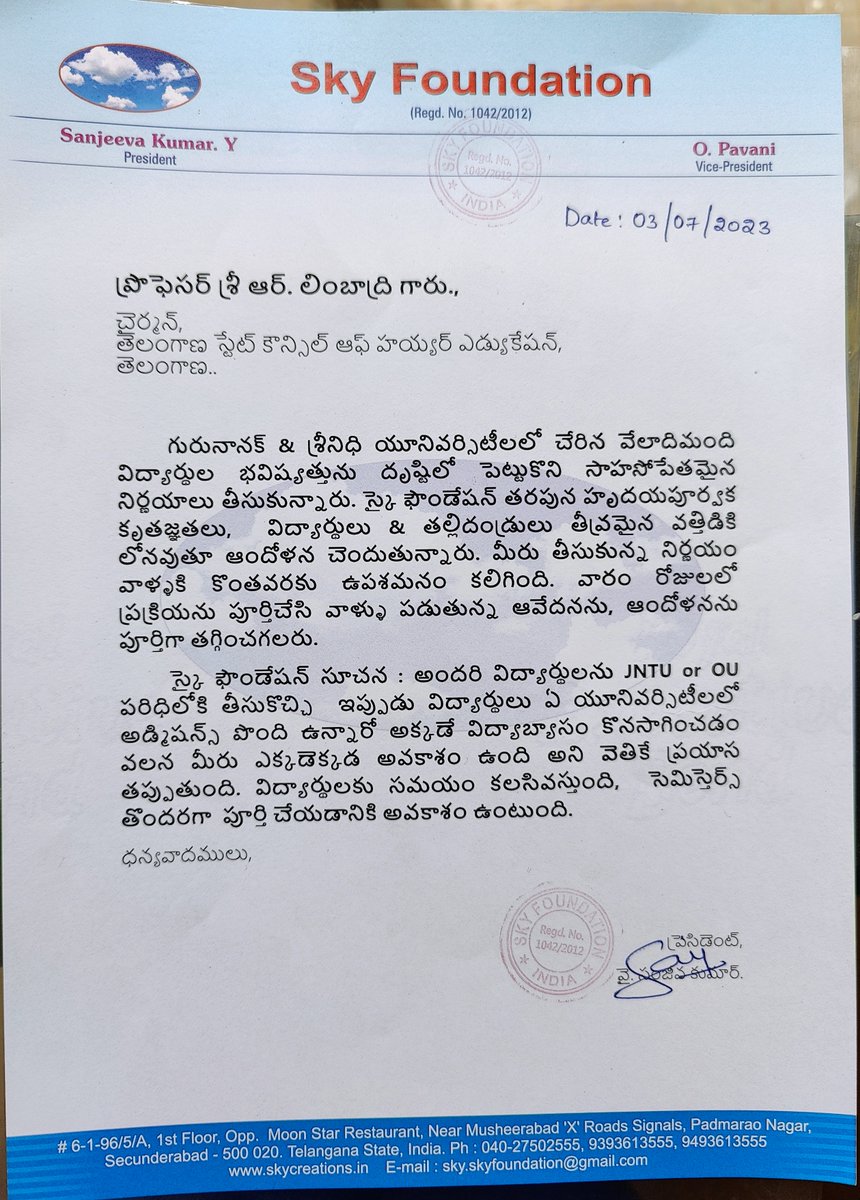 Sky Foundation
(Regd. No. 1042/2012)
Sanjeeva Kumar. Y
President
O. Pavani
Vice-President
SKY FOUNDATION
Regd. No.
1042/2012
INDIA
Date : 03/07/2023
ప్రొఫెసర్ శ్రీ ఆర్. లింబాద్రి గారు.,
చైర్మన్,
తెలంగాణ స్టేట్ కౌన్సిల్ ఆఫ్ హయ్యర్ ఎడ్యుకేషన్,
తెలంగాణ..
గురునానక్ & శ్రీనిధి యూనివర్సిటీలలో చేరిన వేలాదిమంది
విద్యార్థుల భవిష్యత్తును దృష్టిలో పెట్టుకొని సాహసోపేతమైన
నిర్ణయాలు తీసుకున్నారు. స్కై ఫౌండేషన్ తరపున హృదయపూర్వక
కృతజ్ఞతలు, విద్యార్థులు & తల్లిదండ్రులు తీవ్రమైన వత్తిడికి
లోనవుతూ ఆందోళన చెందుతున్నారు. మీరు తీసుకున్న నిర్ణయం
వాళ్ళకి కొంతవరకు ఉపశమనం కలిగింది. వారం రోజులలో
ప్రక్రియను పూర్తిచేసి వాళ్ళు పడుతున్న ఆవేదనను, ఆందోళనను
పూర్తిగా తగ్గించగలరు.
స్కై ఫౌండేషన్ సూచన : అందరి విద్యార్థులను JNTU or OU
పరిధిలోకి తీసుకొచ్చి ఇప్పుడు విద్యార్థులు ఏ యూనివర్సిటీలలో
అడ్మిషన్స్ పొంది ఉన్నారో అక్కడే విద్యాబ్యాసం కొనసాగించడం
వలన మీరు ఎక్కడెక్కడ అవకాశం ఉంది అని వెతికే ప్రయాస
తప్పుతుంది. విద్యార్థులకు సమయం కలసివస్తుంది, సెమిస్తెర్స్
తొందరగా పూర్తి చేయడానికి అవకాశం ఉంటుంది.
ధన్యవాదములు,
SKY FOUNDATION
Regd. No.
1042/2012
INDIA
ప్రెసిడెంట్,
వై. సంజీవ కుమార్.
# 6-1-96/5/A, 1st Floor, Opp. Moon Star Restaurant, Near Musheerabad 'X' Roads Signals, Padmarao Nagar,
Secunderabad - 500 020. Telangana State, India. Ph : 040-27502555, 9393613555, 9493613555
www.skycreations.in E-mail : sky.skyfoundation@gmail.com